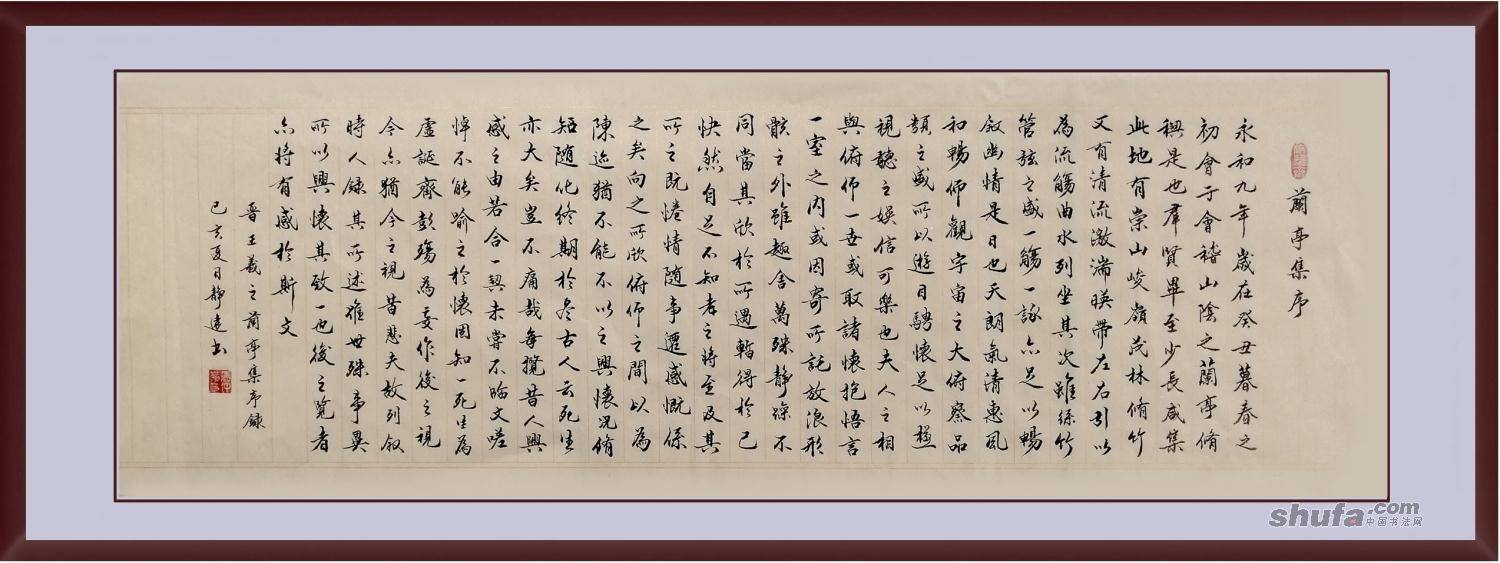 蘭亭集序
永和九年歲在癸丑暮春之
初會于會稽山陰之蘭亭脩
禊是也羣賢畢至少長咸集
此地有崇山峻嶺茂林脩竹
又有清流激湍暎帶左右引以
為流觴曲水列坐其次雖絲竹
管弦之盛一觴一詠亦足以暢
敘幽情是日也天朗氣清惠風
和暢仰觀宇宙之大俯察品
類之盛所以遊目騁懷足以極
視聽之娛信可樂也夫人之相
與俯仰一世或取諸懷抱悟言
一室之內或因寄所託放浪形
骸之外雖趣舍萬殊靜躁不
同當其欣於所遇暫得於己
快然自足不知老之將至及其
所之既惓情隨事遷感慨係
之矣向之所欣俯仰之間以為
陳迹猶不能不以之興懷況脩
短隨化終期於盡古人云死生
亦大矣豈不痛哉每攬昔人興
感之由若合一契未嘗不臨文嗟
悼不能喻之於懷固知一死生為
虛誕齊彭殤為妄作後之視
今亦猶今之視昔悲夫故列敘
時人錄其所述雖世殊事異
所以興懷其致一也後之覽者
亦將有感於斯文
晉王羲之蘭亭集序錄
己亥夏日靜遠書
shufa.com
中国书法网